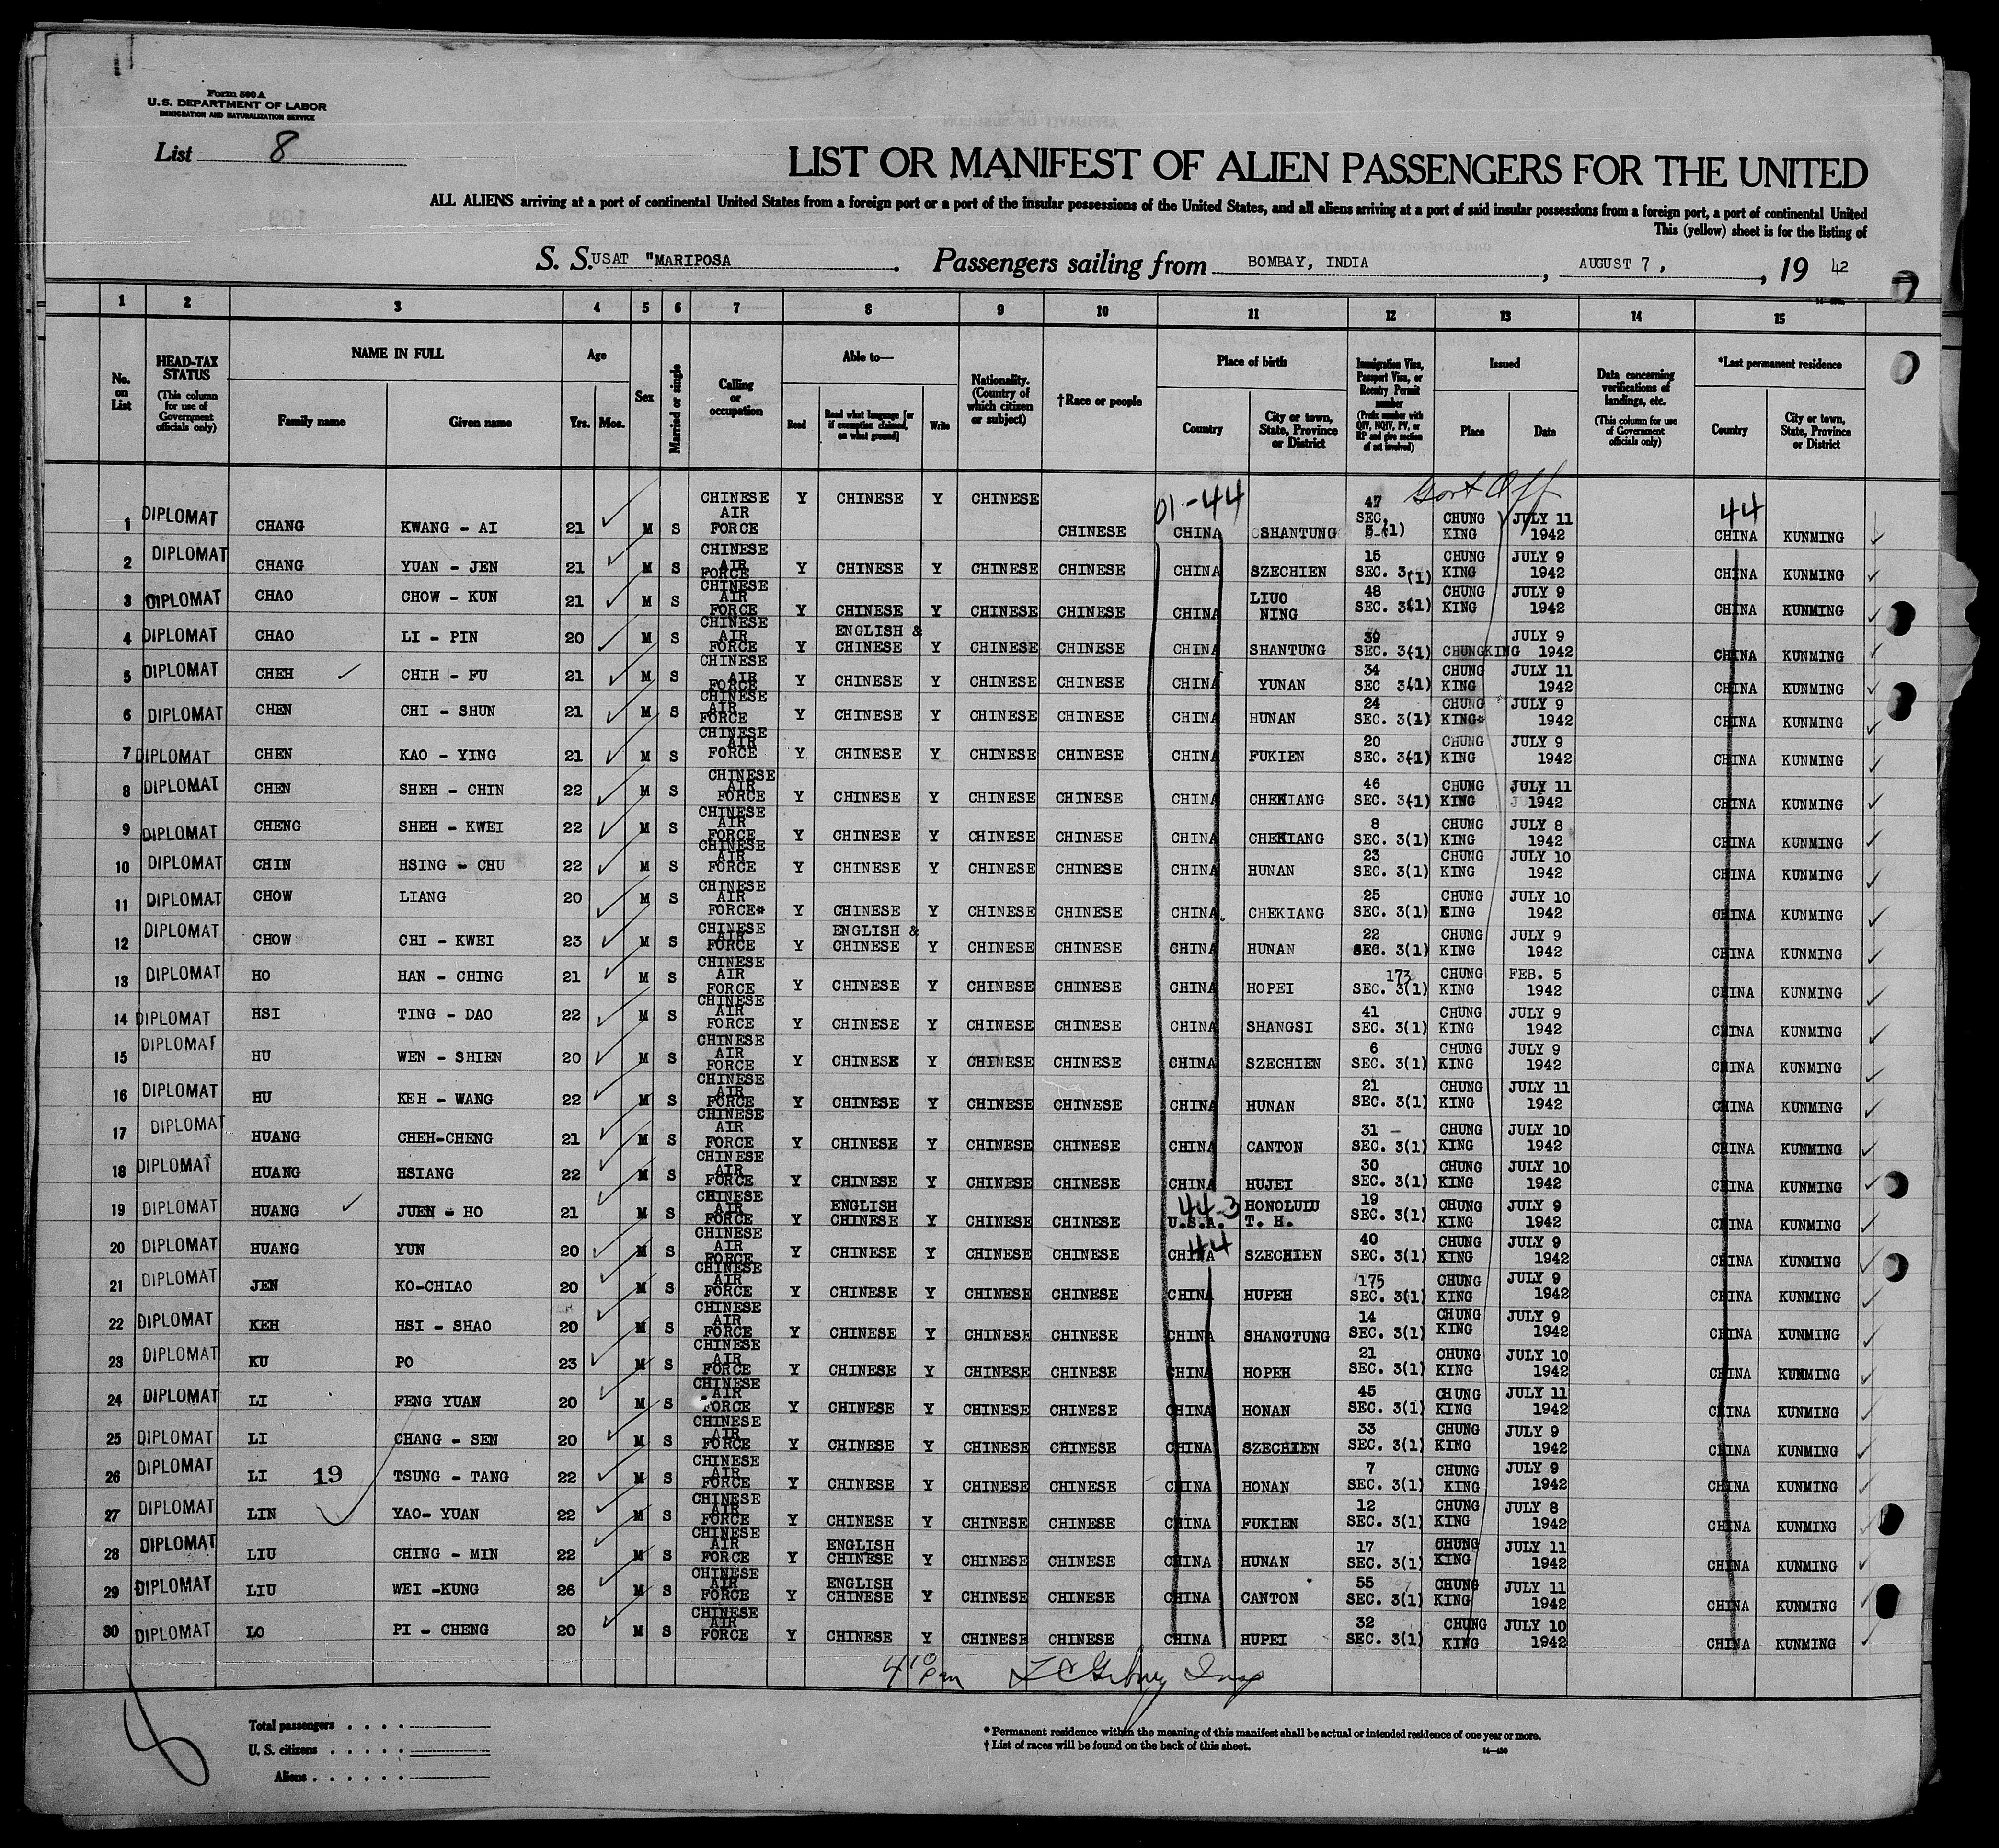 Form 500 A
U.S. DEPARTMENT OF LABOR
IMMIGRATION AND NATURALIZATION SERVICE
List 8
LIST OR MANIFEST OF ALIEN PASSENGERS FOR THE UNITED
ALL ALIENS arriving at a port of continental United States from a foreign port or a port of the insular possessions of the United States, and all aliens arriving at a port of said insular possessions from a foreign port, a port of continental United
This (yellow) sheet is for the listing of
S. S. USAT "MARIPOSA . Passengers sailing from BOMBAY, INDIA , AUGUST 7, , 19 42
1 2 3 4 5 6 7 8 9 10 11 12 13 14 15
No. on List
HEAD-TAX STATUS (This column for use of Government officials only)
NAME IN FULL Family name Given name
Age Yrs. Mos.
Sex
Married or single
Calling or occupation
Able to— Read Read what language [or if exemption claimed, on what ground] Write
Nationality. (Country of which citizen or subject)
†Race or people
Place of birth Country City or town, State, Province or District
Immigration Visa, Passport Visa, or Reentry Permit number (Prefix number with QIV, NQIV, PV, or RP and give section of act involved)
Issued Place Date
Data concerning verifications of landings, etc. (This column for use of Government officials only)
*Last permanent residence Country City or town, State, Province or District
01-44 Govt Off 44
1 DIPLOMAT CHANG KWANG - AI 21 M S CHINESE AIR FORCE Y CHINESE Y CHINESE CHINESE CHINA SHANTUNG 47 SEC. 3(1) CHUNG KING JULY 11 1942 CHINA KUNMING
2 DIPLOMAT CHANG YUAN - JEN 21 M S CHINESE AIR FORCE Y CHINESE Y CHINESE CHINESE CHINA SZECHIEN 15 SEC. 3(1) CHUNG KING JULY 9 1942 CHINA KUNMING
3 DIPLOMAT CHAO CHOW - KUN 21 M S CHINESE AIR FORCE Y CHINESE Y CHINESE CHINESE CHINA LIUO NING 48 SEC. 3(1) CHUNG KING JULY 9 1942 CHINA KUNMING
4 DIPLOMAT CHAO LI - PIN 20 M S CHINESE AIR FORCE Y ENGLISH & CHINESE Y CHINESE CHINESE CHINA SHANTUNG 39 SEC. 3(1) CHUNGKING JULY 9 1942 CHINA KUNMING
5 DIPLOMAT CHEH CHIH - FU 21 M S CHINESE AIR FORCE Y CHINESE Y CHINESE CHINESE CHINA YUNAN 34 SEC 3(1) CHUNG KING JULY 11 1942 CHINA KUNMING
6 DIPLOMAT CHEN CHI - SHUN 21 M S CHINESE AIR FORCE Y CHINESE Y CHINESE CHINESE CHINA HUNAN 24 SEC. 3(1) CHUNG KING* JULY 9 1942 CHINA KUNMING
7 DIPLOMAT CHEN KAO - YING 21 M S CHINESE AIR FORCE Y CHINESE Y CHINESE CHINESE CHINA FUKIEN 20 SEC. 3(1) CHUNG KING JULY 9 1942 CHINA KUNMING
8 DIPLOMAT CHEN SHEH - CHIN 22 M S CHINESE AIR FORCE Y CHINESE Y CHINESE CHINESE CHINA CHEKIANG 46 SEC. 3(1) CHUNG KING JULY 11 1942 CHINA KUNMING
9 DIPLOMAT CHENG SHEH - KWEI 22 M S CHINESE AIR FORCE Y CHINESE Y CHINESE CHINESE CHINA CHEKIANG 8 SEC. 3(1) CHUNG KING JULY 8 1942 CHINA KUNMING
10 DIPLOMAT CHIN HSING - CHU 22 M S CHINESE AIR FORCE Y CHINESE Y CHINESE CHINESE CHINA HUNAN 23 SEC. 3(1) CHUNG KING JULY 10 1942 CHINA KUNMING
11 DIPLOMAT CHOW LIANG 20 M S CHINESE AIR FORCE* Y CHINESE Y CHINESE CHINESE CHINA CHEKIANG 25 SEC. 3(1) CHUNG KING JULY 10 1942 CHINA KUNMING
12 DIPLOMAT CHOW CHI - KWEI 23 M S CHINESE AIR FORCE Y ENGLISH & CHINESE Y CHINESE CHINESE CHINA HUNAN 22 SEC. 3(1) CHUNG KING JULY 9 1942 CHINA KUNMING
13 DIPLOMAT HO HAN - CHING 21 M S CHINESE AIR FORCE Y CHINESE Y CHINESE CHINESE CHINA HOPEI 173 SEC. 3(1) CHUNG KING FEB. 5 1942 CHINA KUNMING
14 DIPLOMAT HSI TING - DAO 22 M S CHINESE AIR FORCE Y CHINESE Y CHINESE CHINESE CHINA SHANGSI 41 SEC. 3(1) CHUNG KING JULY 9 1942 CHINA KUNMING
15 DIPLOMAT HU WEN - SHIEN 20 M S CHINESE AIR FORCE Y CHINESE Y CHINESE CHINESE CHINA SZECHIEN 6 SEC. 3(1) CHUNG KING JULY 9 1942 CHINA KUNMING
16 DIPLOMAT HU KEH - WANG 22 M S CHINESE AIR FORCE Y CHINESE Y CHINESE CHINESE CHINA HUNAN 21 SEC. 3(1) CHUNG KING JULY 11 1942 CHINA KUNMING
17 DIPLOMAT HUANG CHEH-CHENG 21 M S CHINESE AIR FORCE Y CHINESE Y CHINESE CHINESE CHINA CANTON 31 - SEC. 3(1) CHUNG KING JULY 10 1942 CHINA KUNMING
18 DIPLOMAT HUANG HSIANG 22 M S CHINESE AIR FORCE Y CHINESE Y CHINESE CHINESE CHINA HUJEI 30 SEC. 3(1) CHUNG KING JULY 10 1942 CHINA KUNMING
19 DIPLOMAT HUANG JUEN - HO 21 M S CHINESE AIR FORCE Y ENGLISH CHINESE Y CHINESE CHINESE 44-3 U.S.A. HONOLULU T. H. 19 SEC. 3(1) CHUNG KING JULY 9 1942 CHINA KUNMING
20 DIPLOMAT HUANG YUN 20 M S CHINESE AIR FORCE Y CHINESE Y CHINESE CHINESE 44 CHINA SZECHIEN 40 SEC. 3(1) CHUNG KING JULY 9 1942 CHINA KUNMING
21 DIPLOMAT JEN KO-CHIAO 20 M S CHINESE AIR FORCE Y CHINESE Y CHINESE CHINESE CHINA HUPEH 175 SEC. 3(1) CHUNG KING JULY 9 1942 CHINA KUNMING
22 DIPLOMAT KEH HSI - SHAO 20 M S CHINESE AIR FORCE Y CHINESE Y CHINESE CHINESE CHINA SHANGTUNG 14 SEC. 3(1) CHUNG KING JULY 9 1942 CHINA KUNMING
23 DIPLOMAT KU PO 23 M S CHINESE AIR FORCE Y CHINESE Y CHINESE CHINESE CHINA HOPEH 21 SEC. 3(1) CHUNG KING JULY 10 1942 CHINA KUNMING
24 DIPLOMAT LI FENG YUAN 20 M S CHINESE AIR FORCE Y CHINESE Y CHINESE CHINESE CHINA HONAN 45 SEC. 3(1) CHUNG KING JULY 11 1942 CHINA KUNMING
25 DIPLOMAT LI CHANG - SEN 20 M S CHINESE AIR FORCE Y CHINESE Y CHINESE CHINESE CHINA SZECHIEN 33 SEC. 3(1) CHUNG KING JULY 9 1942 CHINA KUNMING
26 DIPLOMAT LI 19 TSUNG - TANG 22 M S CHINESE AIR FORCE Y CHINESE Y CHINESE CHINESE CHINA HONAN 7 SEC. 3(1) CHUNG KING JULY 9 1942 CHINA KUNMING
27 DIPLOMAT LIN YAO- YUAN 22 M S CHINESE AIR FORCE Y CHINESE Y CHINESE CHINESE CHINA FUKIEN 12 SEC. 3(1) CHUNG KING JULY 8 1942 CHINA KUNMING
28 DIPLOMAT LIU CHING - MIN 22 M S CHINESE AIR FORCE Y ENGLISH CHINESE Y CHINESE CHINESE CHINA HUNAN 17 SEC. 3(1) CHUNG KING JULY 11 1942 CHINA KUNMING
29 DIPLOMAT LIU WEI -KUNG 26 M S CHINESE AIR FORCE Y ENGLISH CHINESE Y CHINESE CHINESE CHINA CANTON 55 SEC. 3(1) CHUNG KING JULY 11 1942 CHINA KUNMING
30 DIPLOMAT LO PI - CHENG 20 M S CHINESE AIR FORCE Y CHINESE Y CHINESE CHINESE CHINA HUPEI 32 SEC. 3(1) CHUNG KING JULY 10 1942 CHINA KUNMING
4 10 pm
8
Total passengers
U. S. citizens
Aliens
* Permanent residence within the meaning of this manifest shall be actual or intended residence of one year or more.
† List of races will be found on the back of this sheet.
14—430